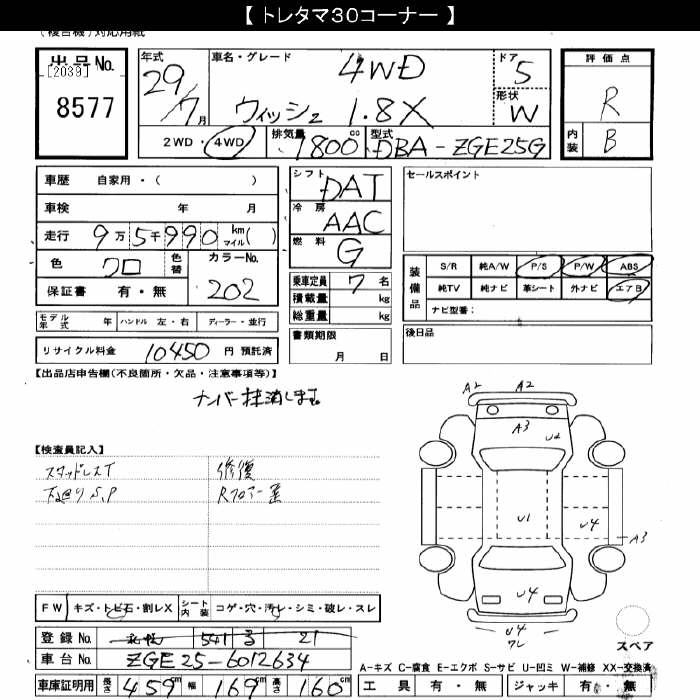 【 トレタマ30コーナー 】
(複合機)対応用紙
出品No.
[2039]
8577
年式
29/7月
車名・グレード
4WD
ウィッシュ 1.8X
ドア
5
形状
W
評価点
R
内装
B
2WD・4WD
排気量
1800cc
型式
DBA-ZGE25G
車歴 自家用・( )
車検 年 月
走行 9万5千990 km マイル( )
色 クロ 色替 カラーNo. 202
保証書 有・無
シフト DAT
冷房 AAC
燃料 G
乗車定員 7名
積載量 kg
総重量 kg
セールスポイント
装備品
S/R 純A/W P/S P/W ABS
純TV 純ナビ 革シート 外ナビ エアB
ナビ型番：
モデル年式 年 ハンドル 左・右 ディーラー・並行
リサイクル料金 10450 円 預託済
書類期限
月 日
後日品
【出品店申告欄(不良箇所・欠品・注意事項等)】
ナンバー抹消します。
【検査員記入】
スタッドレスT 修復
下廻りS.P Rフロアー歪
A2 A2
A3 U2
U1 U4
A3
U4
U4
ワレ
スペア
FW キズ・トビ石・割レX シート内装 コゲ・穴・汚レ・シミ・破レ・スレ
登録No. 541 る 21
車台No. ZGE25-6012634
車庫証明用 長さ 459cm 幅 169cm 高さ 160cm
A-キズ C-腐食 E-エクボ S-サビ U-凹ミ W-補修 XX-交換済
工具 有・無 ジャッキ 有・無